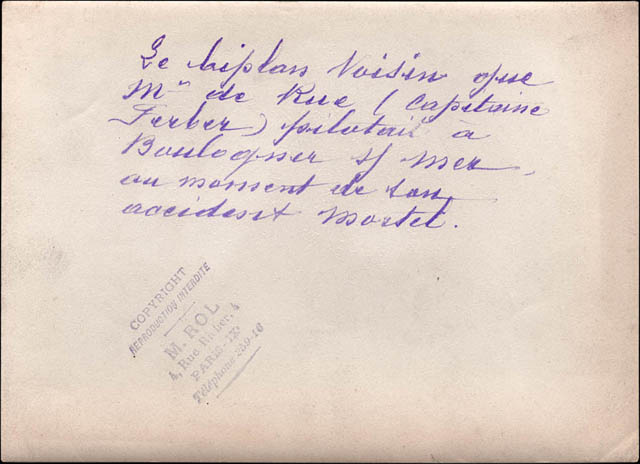 Le biplan Voisin que
Mr de Rue (Capitaine
Ferber) pilotait à
Boulogner s/ mer
au moment de son
accident mortel.
COPYRIGHT
REPRODUCTION INTERDITE
M. ROL
4, Rue Richer, 4
PARIS-IXe
Téléphone 289-10